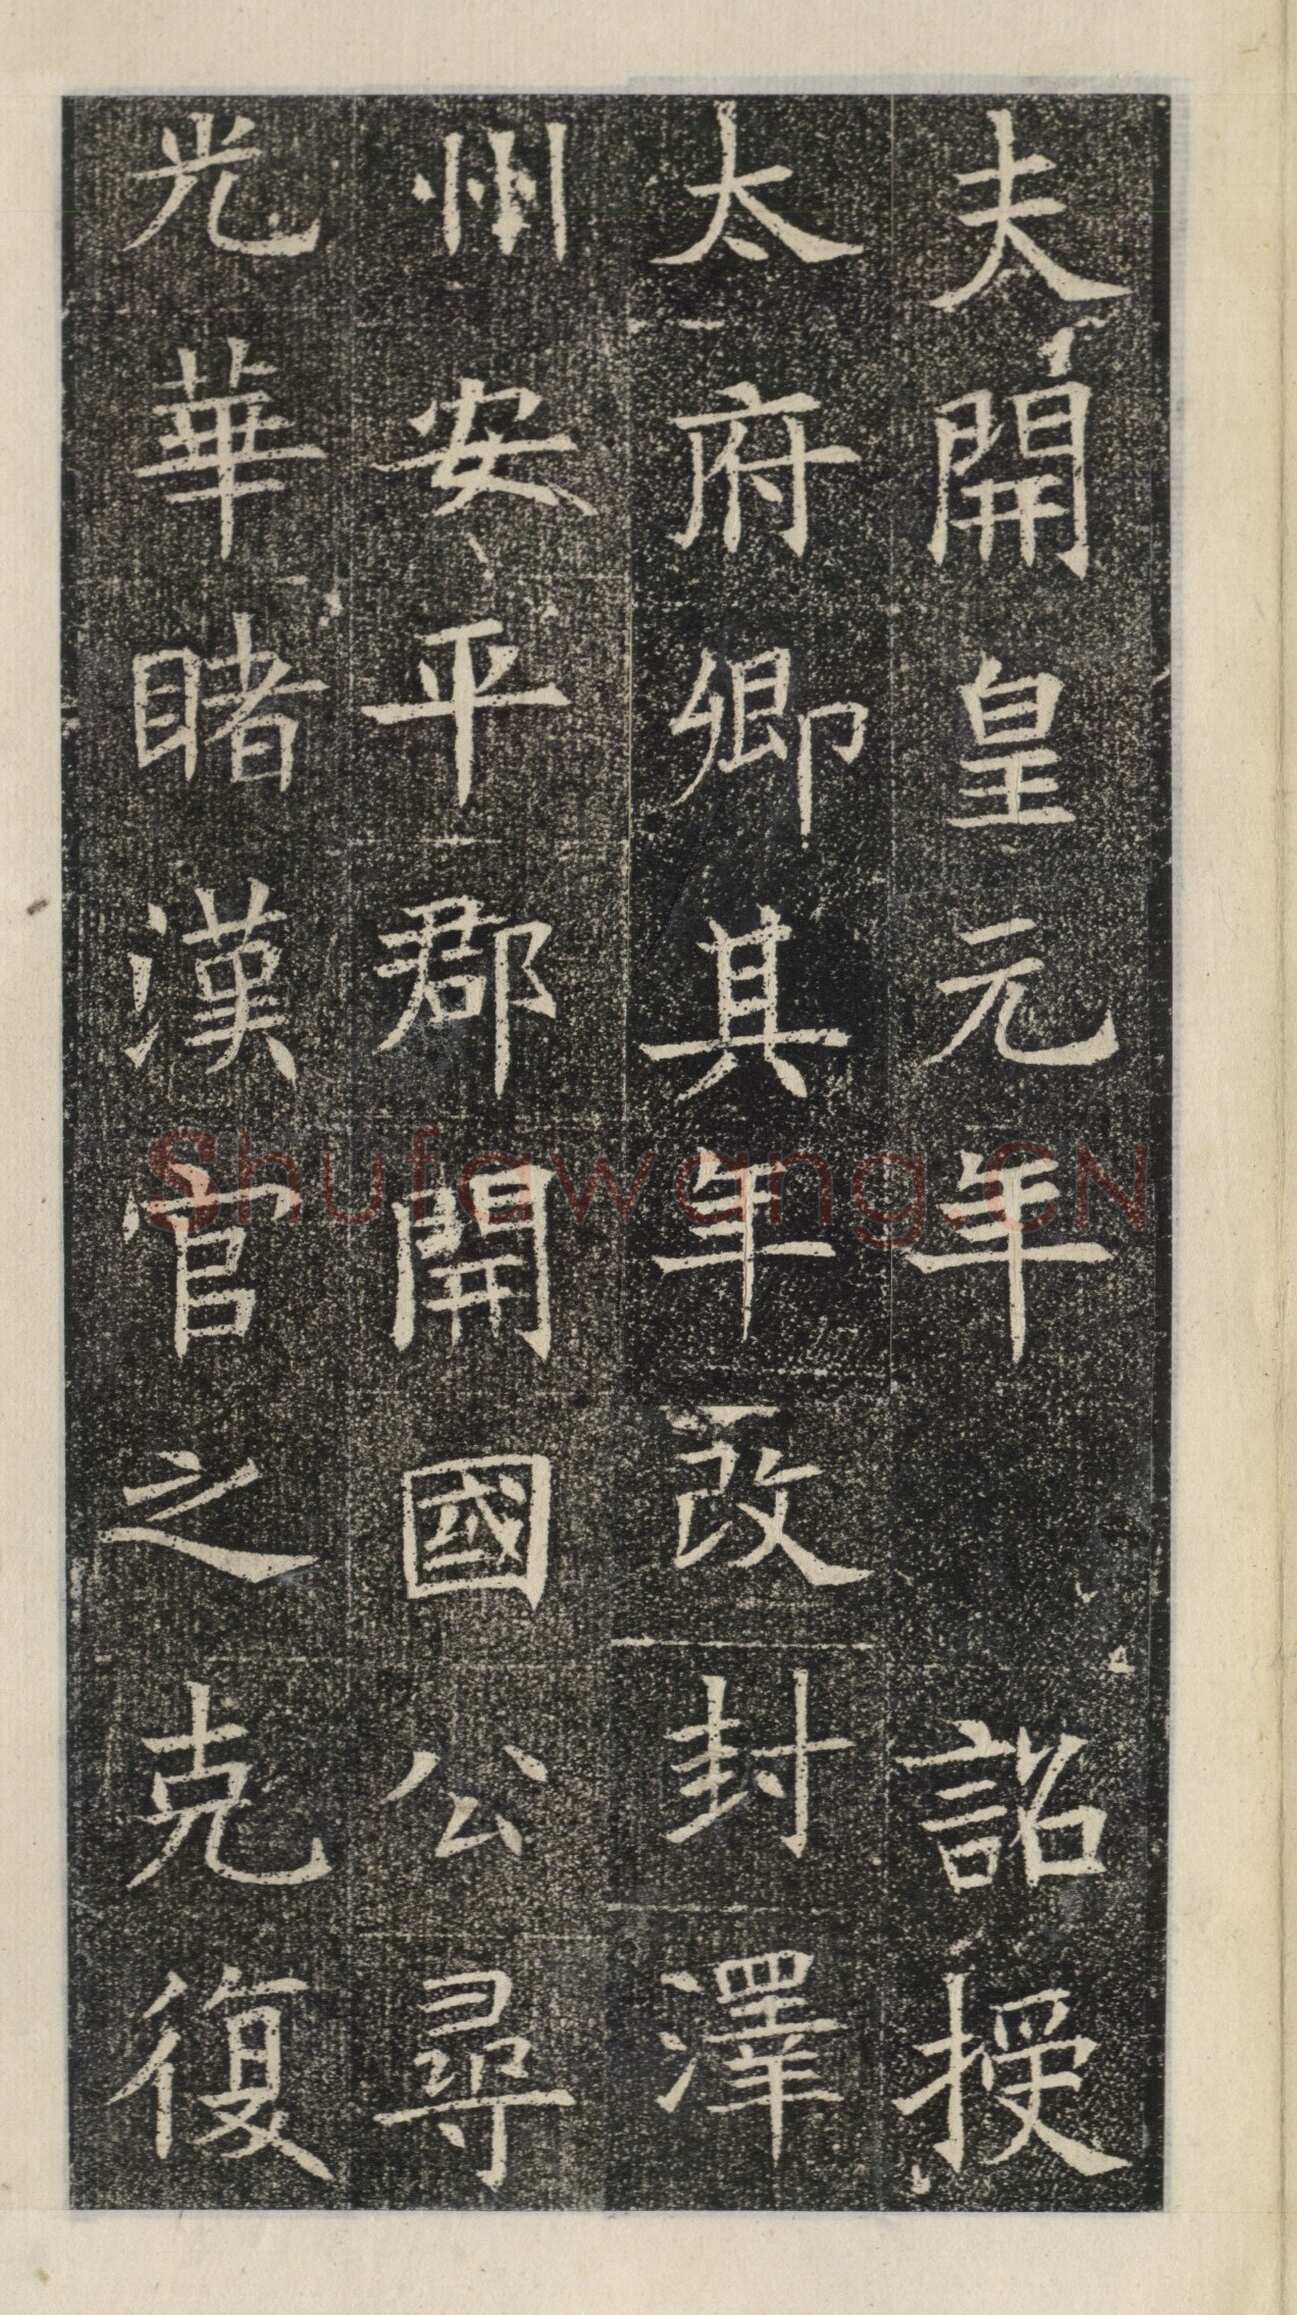 夫開皇元年　詔授
太府卿其年改封澤
州安平郡開國公尋
光華睹漢官之克復
Shufawang.CN